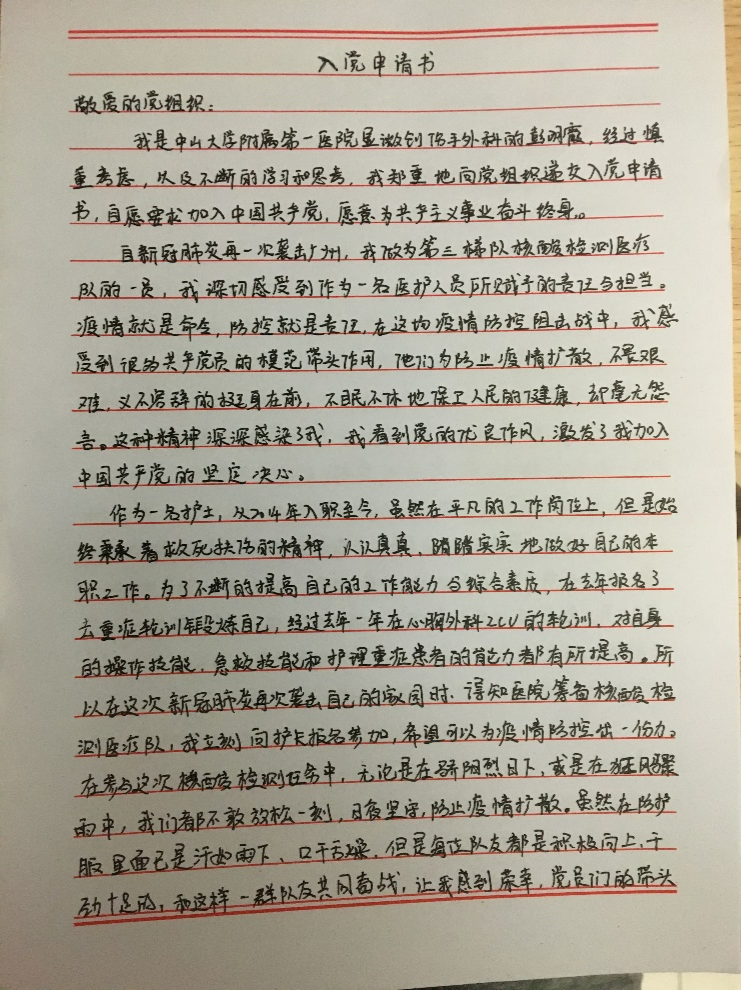 入党申请书
敬爱的党组织：
我是中山大学附属第一医院显微创伤手外科的彭明霞，经过慎
重考虑，以及不断的学习和思考，我郑重地向党组织递交入党申请
书，自愿要求加入中国共产党，愿意为共产主义事业奋斗终身。
自新冠肺炎再一次袭击广州，我做为第三梯队核酸检测医疗
队的一员，我深切感受到作为一名医护人员所赋予的责任与担当。
疫情就是命令，防控就是责任，在这场疫情防控阻击战中，我感
受到很多共产党员的模范带头作用，他们为防止疫情扩散，不畏艰
难，义不容辞的挺身在前，不眠不休地保卫人民的健康，却毫无怨
言。这种精神深深感染了我，我看到党的优良作风，激发了我加入
中国共产党的坚定决心。
作为一名护士，从2014年入职至今，虽然在平凡的工作岗位上，但是始
终秉承着救死扶伤的精神，认认真真，踏踏实实地做好自己的本
职工作。为了不断的提高自己的工作能力与综合素质，在去年报名了
去重症轮训锻炼自己，经过去年一年在心胸外科ICU的轮训，对自身
的操作技能，急救技能和护理重症患者的能力都有所提高。所
以在这次新冠肺炎再次袭击自己的家园时，得知医院筹备核酸检
测医疗队，我立刻向护长报名参加，希望可以为疫情防控出一份力。
在参与这次核酸检测任务中，无论是在骄阳烈日下，或是在狂风骤
雨中，我们都不敢放松一刻，日夜坚守，防止疫情扩散。虽然在防护
服里面已是汗如雨下、口干舌燥，但是每位队友都是积极向上，干
劲十足的，和这样一群队友共同奋战，让我感到荣幸，党员们的带头